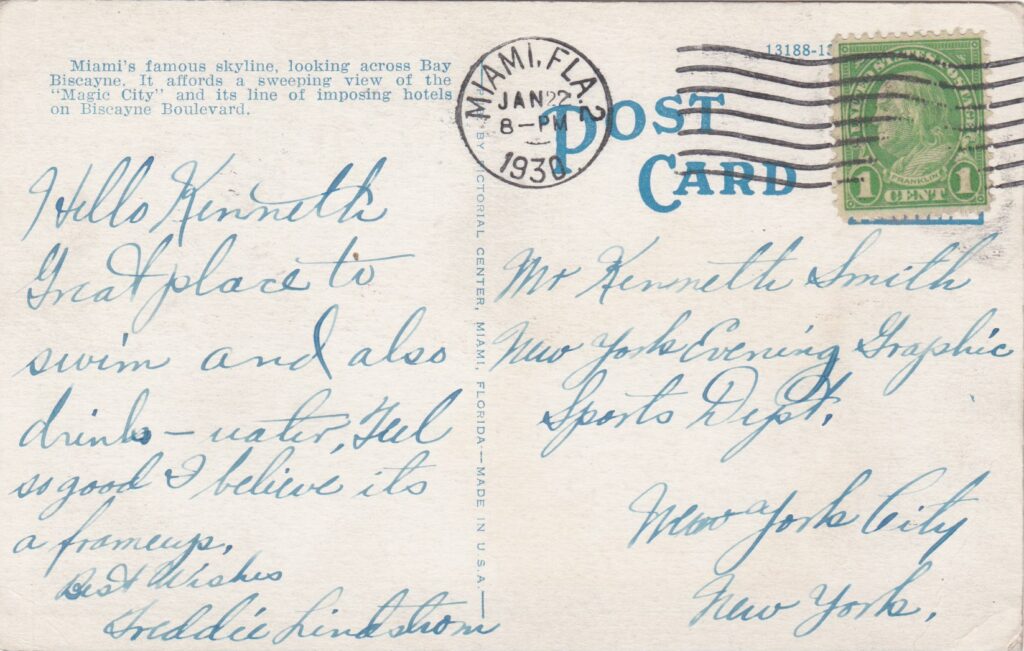 Miami's famous skyline, looking across Bay
Biscayne. It affords a sweeping view of the
"Magic City" and its line of imposing hotels
on Biscayne Boulevard.
Hello Kenneth
Great place to
swim and also
drink – water, Feel
so good I believe its
a frameup.
Best Wishes
Freddie Lindstrom
BY VICTORIAL CENTER, MIAMI, FLORIDA—MADE IN U.S.A.
MIAMI, FLA. 2
JAN 22
8–PM
1930
13188
POST
CARD
FRANKLIN
1 CENT 1
Mr Kenneth Smith
New York Evening Graphic
Sports Dept.
New York City
New York.